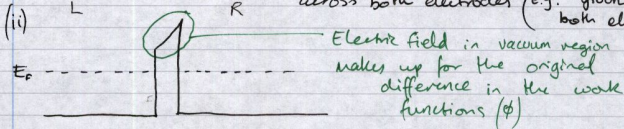 across both electrodes (e.g. groun
both el
(ii) L R
Electric field in vacuum region
makes up for the original
difference in the work
functions (φ)
E_F